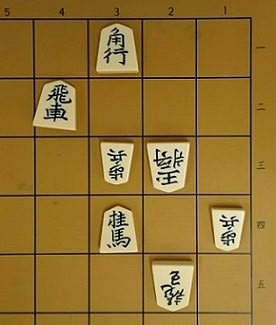 5 4 3 2 1
角行
一
飛車
二
歩兵
玉将
三
桂馬
歩兵
四
五